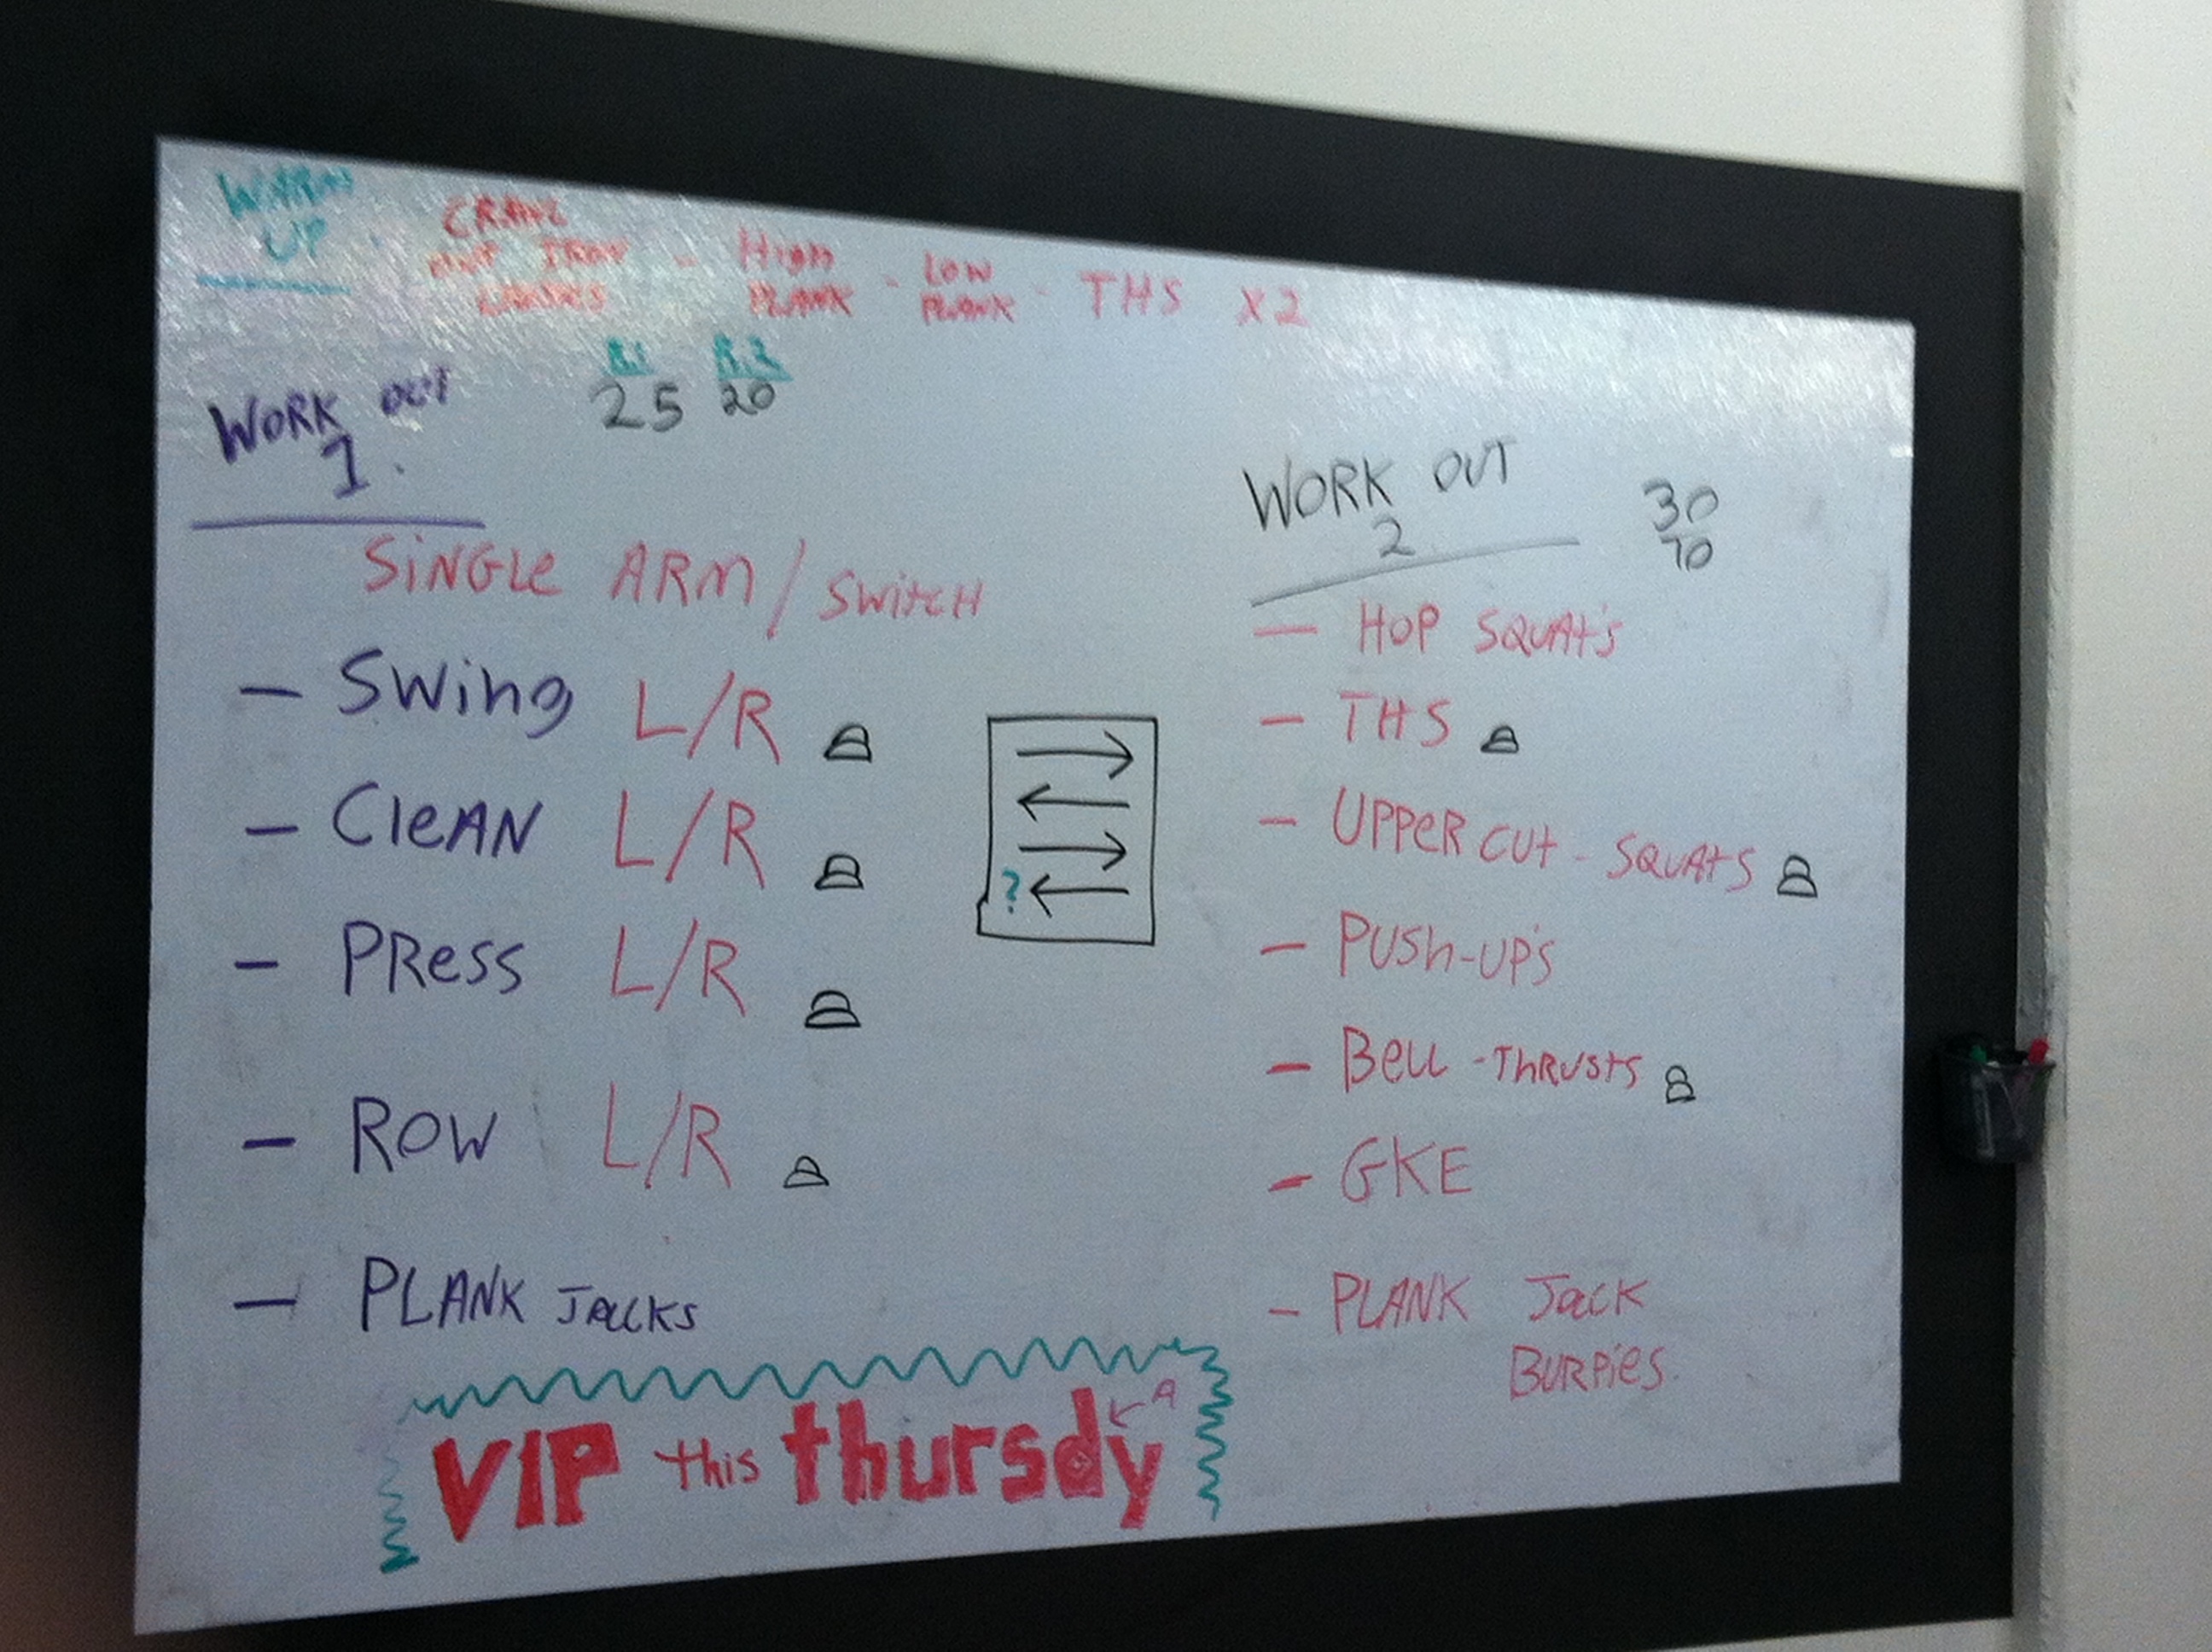 WARM
UP
CRAWL
OUT IRON
- High
PLANK
- LOW
PLANK
- THS X2
WORK OUT
1.
R.1 R.2
25 20
SiNGLe ARM / SWitCH
- Swing L/R
- CleAN L/R
- PRess L/R
- ROW L/R
- PLANK JACKS
?
WORK OUT
2
30
10
- HOP SQUAt's
- THS
- UPPeR CUt - SQUAtS
- PUSh-UP's
- Bell - ThRUStS
- GKE
- PLANK JaCK
BURPieS.
VIP this thursdy
A